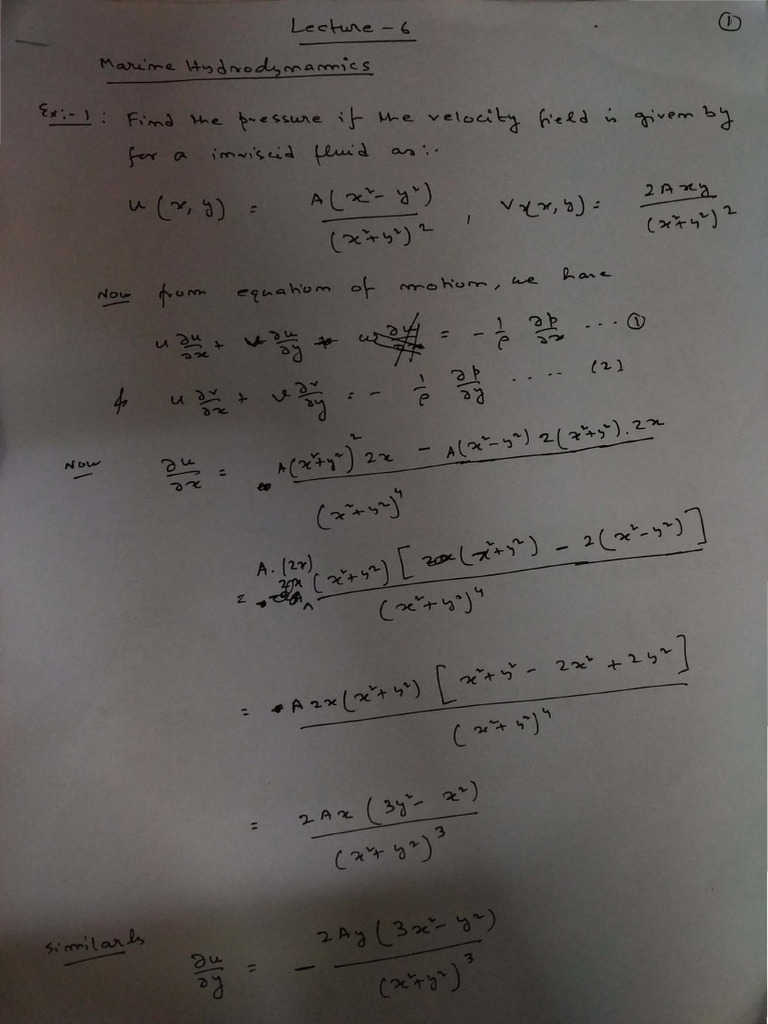 Lecture - 6
①
Marine Hydrodynamics
Ex:- 1 : Find the pressure if the velocity field is given by
for a inviscid fluid as:-
u(x, y) = A(x² - y²) / (x²+y²)² , v(x, y) = 2Axy / (x²+y²)²
Now from equation of motion, we have
u ∂u/∂x + v ∂u/∂y = - 1/ρ ∂p/∂x ... ①
& u ∂v/∂x + v ∂v/∂y = - 1/ρ ∂p/∂y .... (2)
Now ∂u/∂x = A(x²+y²)² 2x - A(x²-y²) 2(x²+y²).2x / (x²+y²)⁴
= A.(2x) (x²+y²) [(x²+y²) - 2(x²-y²)] / (x²+y²)⁴
= A2x(x²+y²) [x²+y² - 2x² + 2y²] / (x²+y²)⁴
= 2Ax (3y² - x²) / (x²+y²)³
Similarly ∂u/∂y = - 2Ay (3x² - y²) / (x²+y²)³